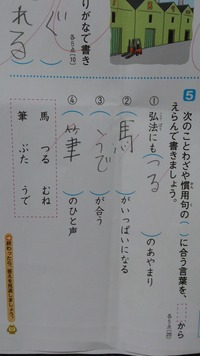 れる
ぐ
りがなで書き
各5点【10】
5
次のことわざや慣用句の( )に合う言葉を、□から
えらんで書きましょう。
各5点【20】
①弘法にも(つる)のあやまり
②(馬)がいっぱいになる
③(うで)が合う
④(筆)のひと声
馬 つる むね
筆 ぶた うで